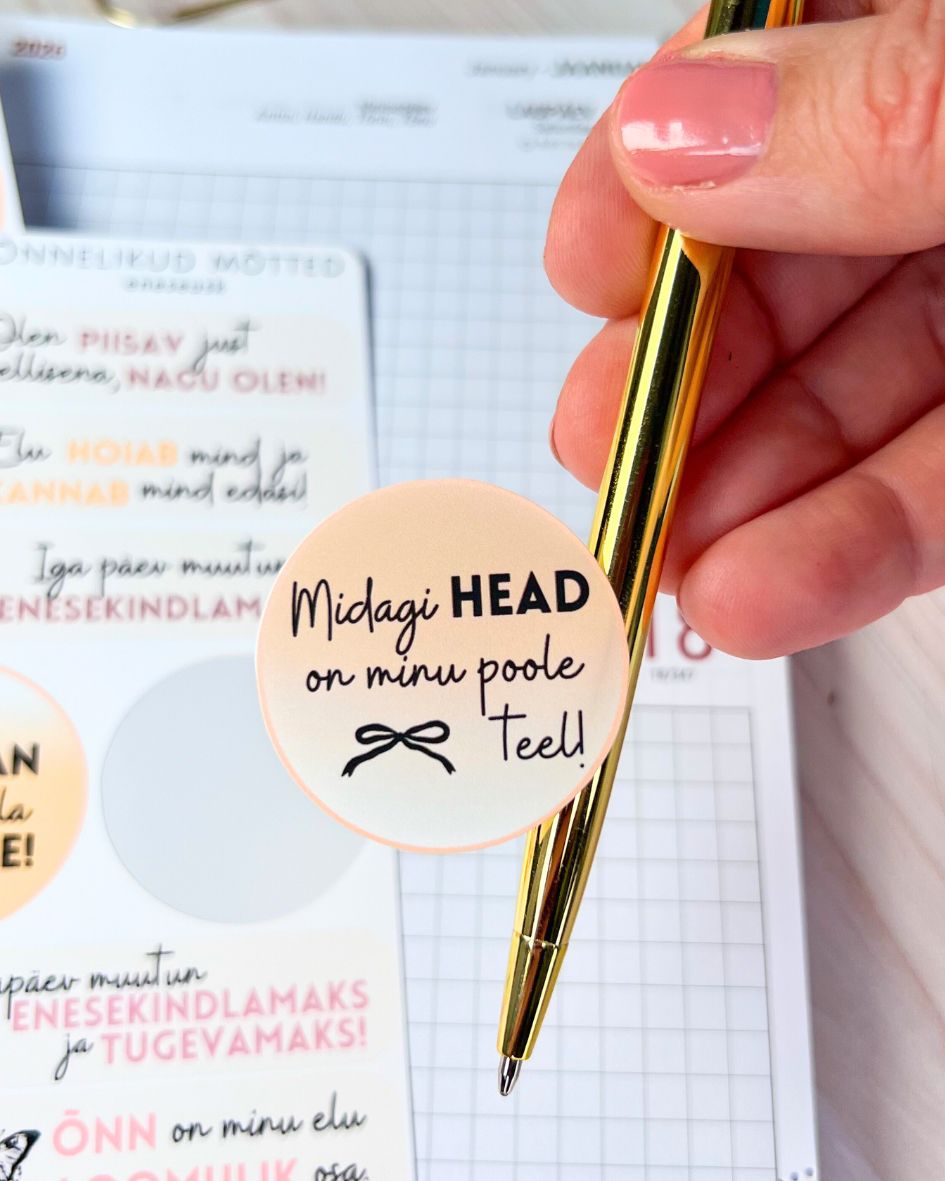 ÕNNELIKUD MÕTTED
Olen PIISAV just
NAGU OLEN!
Elu HOIAB mind ja
KANNAB mind edasi!
Iga päev muutun
ENESEKINDLAM
Midagi HEAD
on minu poole
teel!
AN
la
E!
päev muutun
ENESEKINDLAMAKS
ja TUGEVAMAKS!
ÕNN on minu elu
LOOMULIK osa.
18